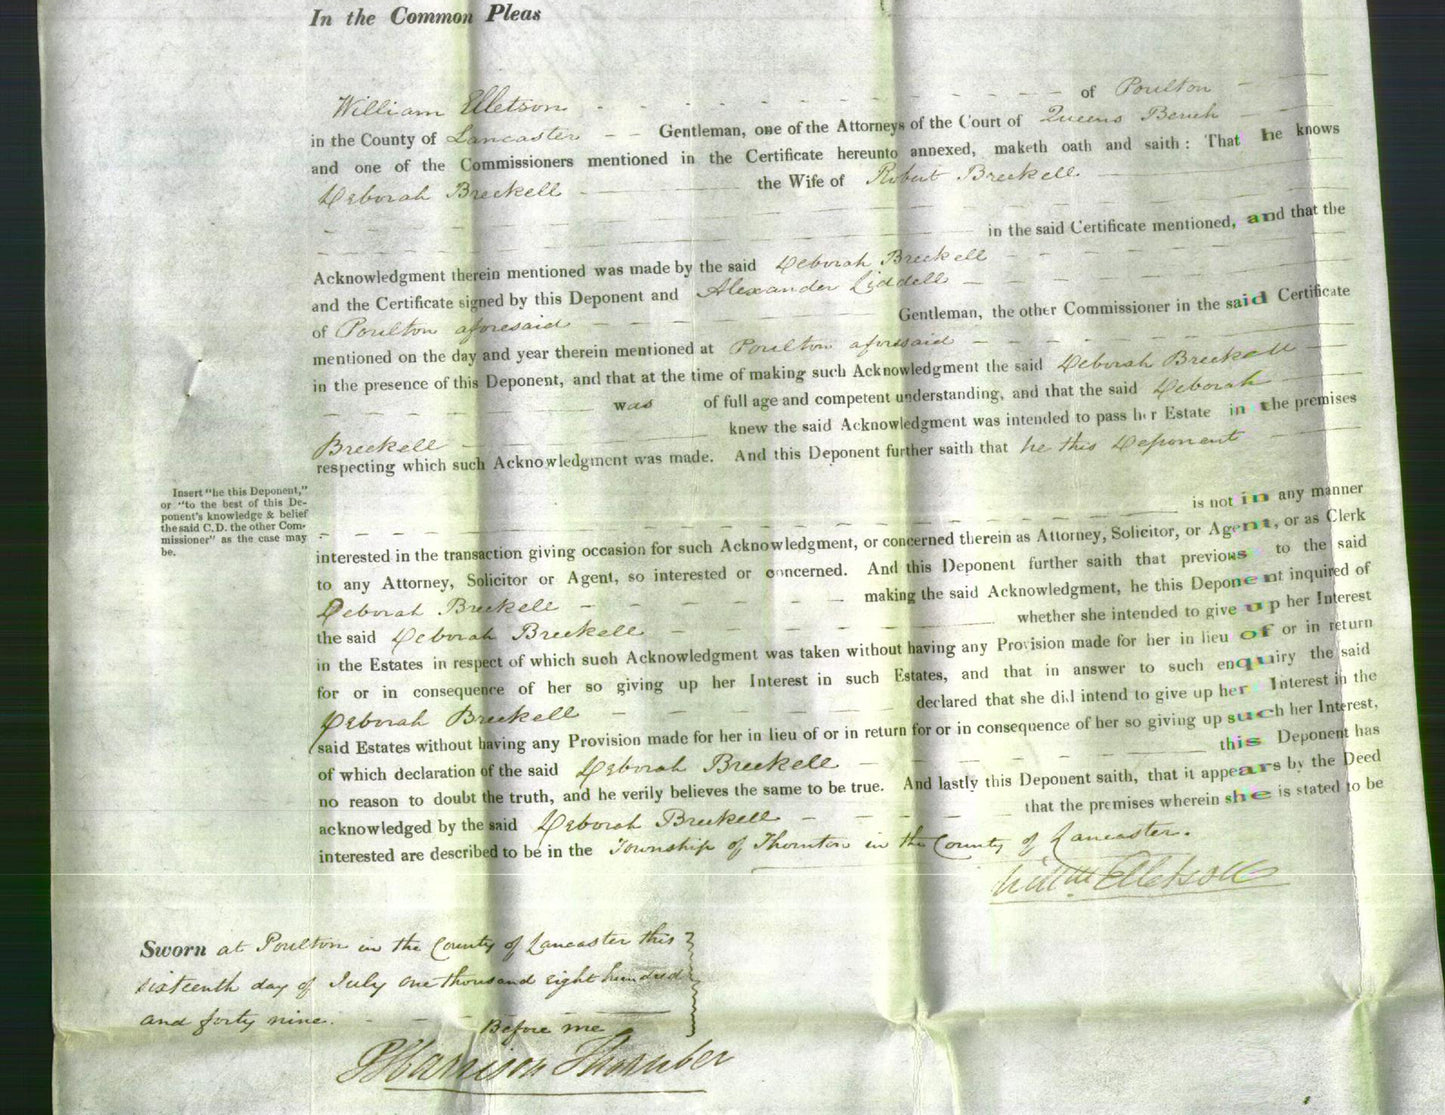 In the Common Pleas
William Elletson of Poulton
in the County of Lancaster Gentleman, one of the Attorneys of the Court of Queens Bench
and one of the Commissioners mentioned in the Certificate hereunto annexed, maketh oath and saith: That he knows
Deborah Breckell the Wife of Robert Breckell
in the said Certificate mentioned, and that the
Acknowledgment therein mentioned was made by the said Deborah Breckell
and the Certificate signed by this Deponent and Alexander Liddell
of Poulton aforesaid Gentleman, the other Commissioner in the said Certificate
mentioned on the day and year therein mentioned at Poulton aforesaid
in the presence of this Deponent, and that at the time of making such Acknowledgment the said Deborah Breckell
was of full age and competent understanding, and that the said Deborah
Breckell knew the said Acknowledgment was intended to pass her Estate in the premises
respecting which such Acknowledgment was made. And this Deponent further saith that he this Deponent
Insert "he this Deponent,"
or "to the best of this De-
ponent's knowledge & belief
the said C.D. the other Com-
missioner" as the case may
be.
is not in any manner
interested in the transaction giving occasion for such Acknowledgment, or concerned therein as Attorney, Solicitor, or Agent, or as Clerk
to any Attorney, Solicitor or Agent, so interested or concerned. And this Deponent further saith that previous to the said
Deborah Breckell making the said Acknowledgment, he this Deponent inquired of
the said Deborah Breckell whether she intended to give up her Interest
in the Estates in respect of which such Acknowledgment was taken without having any Provision made for her in lieu of or in return
for or in consequence of her so giving up her Interest in such Estates, and that in answer to such enquiry the said
Deborah Breckell declared that she did intend to give up her Interest in the
said Estates without having any Provision made for her in lieu of or in return for or in consequence of her so giving up such her Interest,
of which declaration of the said Deborah Breckell this Deponent has
no reason to doubt the truth, and he verily believes the same to be true. And lastly this Deponent saith, that it appears by the Deed
acknowledged by the said Deborah Breckell that the premises wherein she is stated to be
interested are described to be in the Township of Thornton in the County of Lancaster.
Willm Elletson
Sworn at Poulton in the County of Lancaster this
sixteenth day of July one thousand eight hundred
and forty nine. Before me
P Harrison Thornber